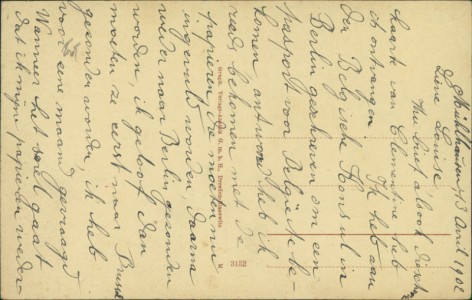 Mühlhausen 3 April 190
Lieve Louise,
Uw brief alsook
kaart van Clementine heb
ik ontvangen. Ik heb aan
den Belgische Konsul in
Berlin geschreven om een
paspoort voor België te be-
komen, antwoord heb ik
reeds bekomen met de
papieren, die moeten nu
ingevuld worden, daarna
weder naar Berlin gezonden
worden, ik geloof dan
moeten ze eerst naar Brussel
gezonden worden ik heb
voor eene maand gevraagd
Wanneer het gaat
dat ik mijne papieren weder-
3152